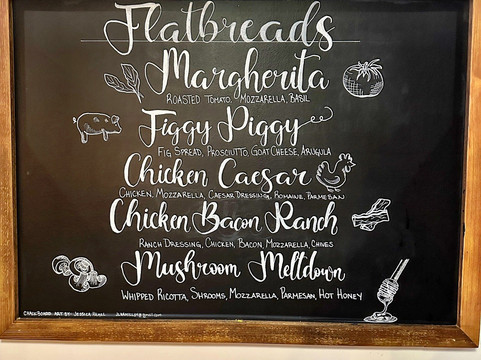 Flatbreads
Margherita
ROASTED TOMATO, MOZZARELLA, BASIL
Figgy Piggy
FIG SPREAD, PROSCIUTTO, GOAT CHEESE, ARUGULA
Chicken Caesar
CHICKEN, MOZZARELLA, CAESAR DRESSING, ROMAINE, PARMESAN
Chicken Bacon Ranch
RANCH DRESSING, CHICKEN, BACON, MOZZARELLA, CHIVES
Mushroom Meltdown
WHIPPED RICOTTA, SHROOMS, MOZZARELLA, PARMESAN, HOT HONEY
CHALKBOARD ART BY: JESSICA